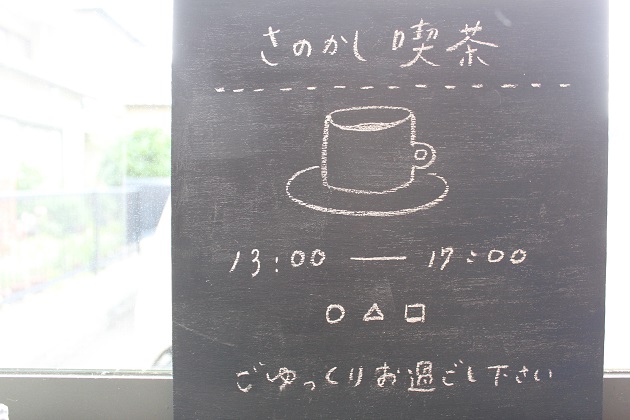 さのかし喫茶
13:00 ― 17:00
○△□
ごゆっくりお過ごし下さい